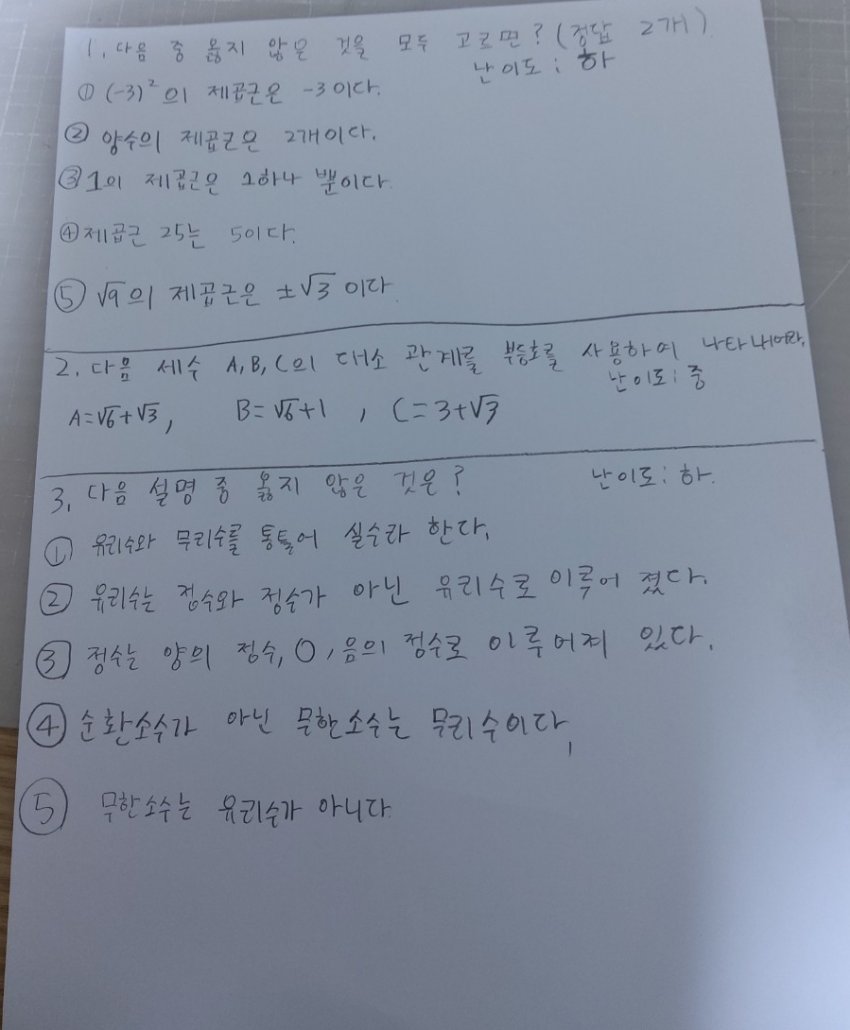 1. 다음 중 옳지 않은 것을 모두 고르면? (정답 2개)
난이도 : 하
① (-3)²의 제곱근은 -3이다.
② 양수의 제곱근은 2개이다.
③ 1의 제곱근은 1하나 뿐이다.
④ 제곱근 25는 5이다.
⑤ √9의 제곱근은 ±√3이다
2. 다음 세수 A, B, C의 대소 관계를 부등호를 사용하여 나타내어라.
난이도 : 중
A=√6+√3, B=√6+1, C=3+√3
3. 다음 설명 중 옳지 않은 것은? 난이도 : 하.
① 유리수와 무리수를 통틀어 실수라 한다.
② 유리수는 정수와 정수가 아닌 유리수로 이루어 졌다.
③ 정수는 양의 정수, 0, 음의 정수로 이루어져 있다.
④ 순환소수가 아닌 무한소수는 무리수이다,
⑤ 무한소수는 유리수가 아니다